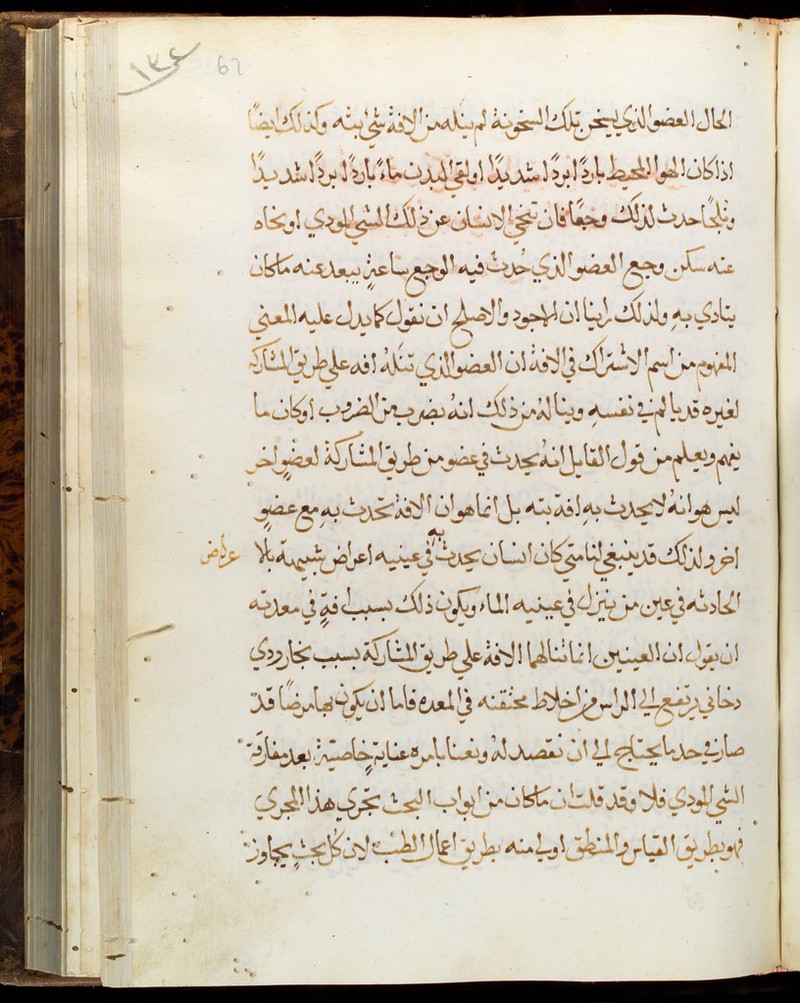 ١٣٤
67
الحال العضو الذي يسخن بتلك السخونة لم ينله من الافة شي بته وكذلك ايضًا
اذا كان الهوا المحيط باردًا بردًا شديدًا او لقي البدن ماءً باردًا بردًا شديدًا
وثلجًا حدث لذلك وجعًا فان تنحي الانسان عن ذلك الشي المودي او نحاه
عنه سكن وجع العضو الذي حدث فيه الوجع ساعةٍ يبعد عنه ما كان
يتادي بهِ ولذلك راينا ان الاجود والاصلح ان نقول كما يدل عليه المعني
المفهوم من اسم الاشتراك في الافة ان العضو الذي تنَلهُ افه علي طريق المشاركه
لغيره قد يالم في نفسهِ وينالهُ من ذلك انهُ بضرب من الضروب او كان ما
يفهم ويعلم من قول القايل انهُ يحدث في عضو من طريق المشاركة لعضوٍ اخر
ليس هو انهُ لا يحدث بهِ افة بته بل انما هو ان الافة تحدث بهِ مع عضوٍ
اخر ولذلك قد ينبغي لنا متي كان انسان يحدث به في عينيه اعراض شبيهة بالا
عراض
الحادثه في عين من ينزل في عينيه الماء ويكون ذلك بسبب افةٍ في معدته
ان يقول ان العينين انما تنالهما الافة علي طريق المشاركة بسبب بخار ردي
دخاني يرتفع الي الراس من اخلاط محتقنه في المعده فاما ان يكون بها مرضًا قد
صار في حد ما يحتاج الي ان نقصد لهُ ونعنا بامره عنايةٍ خاصيّة بعد مفارقة
الشي المودي فلا وقد قلت ان ما كان من ابواب البحث تجري هذا المجري
فهو بطريق القياس والمنطق اولي منه بطريق اعمال الطب لان كل بحثٍ يجاوز